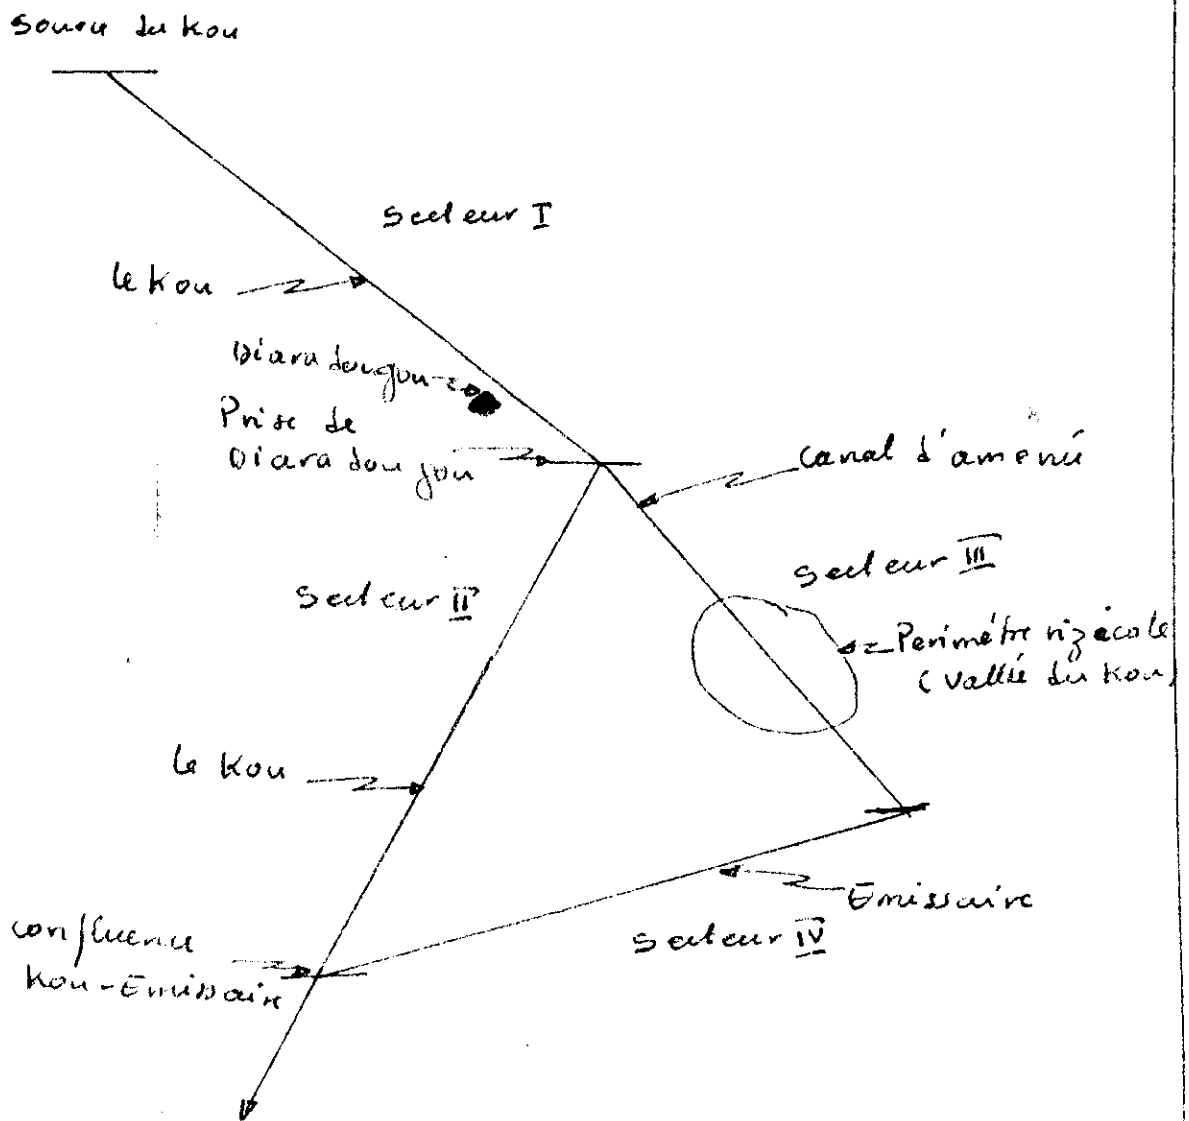 Source du Kou
Secteur I
le Kou
Diaradougou
Prise de
Diaradougou
Canal d'amené
Secteur III
Secteur II
Perimétre rizicole
(Vallée du Kou)
le Kou
Emissaire
Secteur IV
confluence
Kou-Emissaire